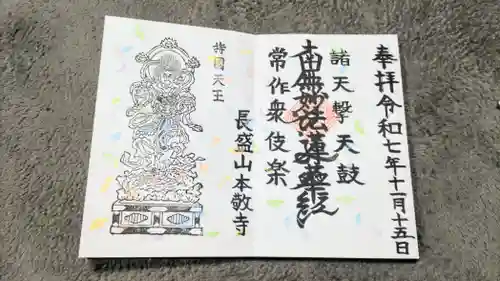 奉拝令和七年十一月十五日
諸天撃天鼓
南無妙法蓮華経
常作衆伎楽
長盛山本敬寺
持国天王